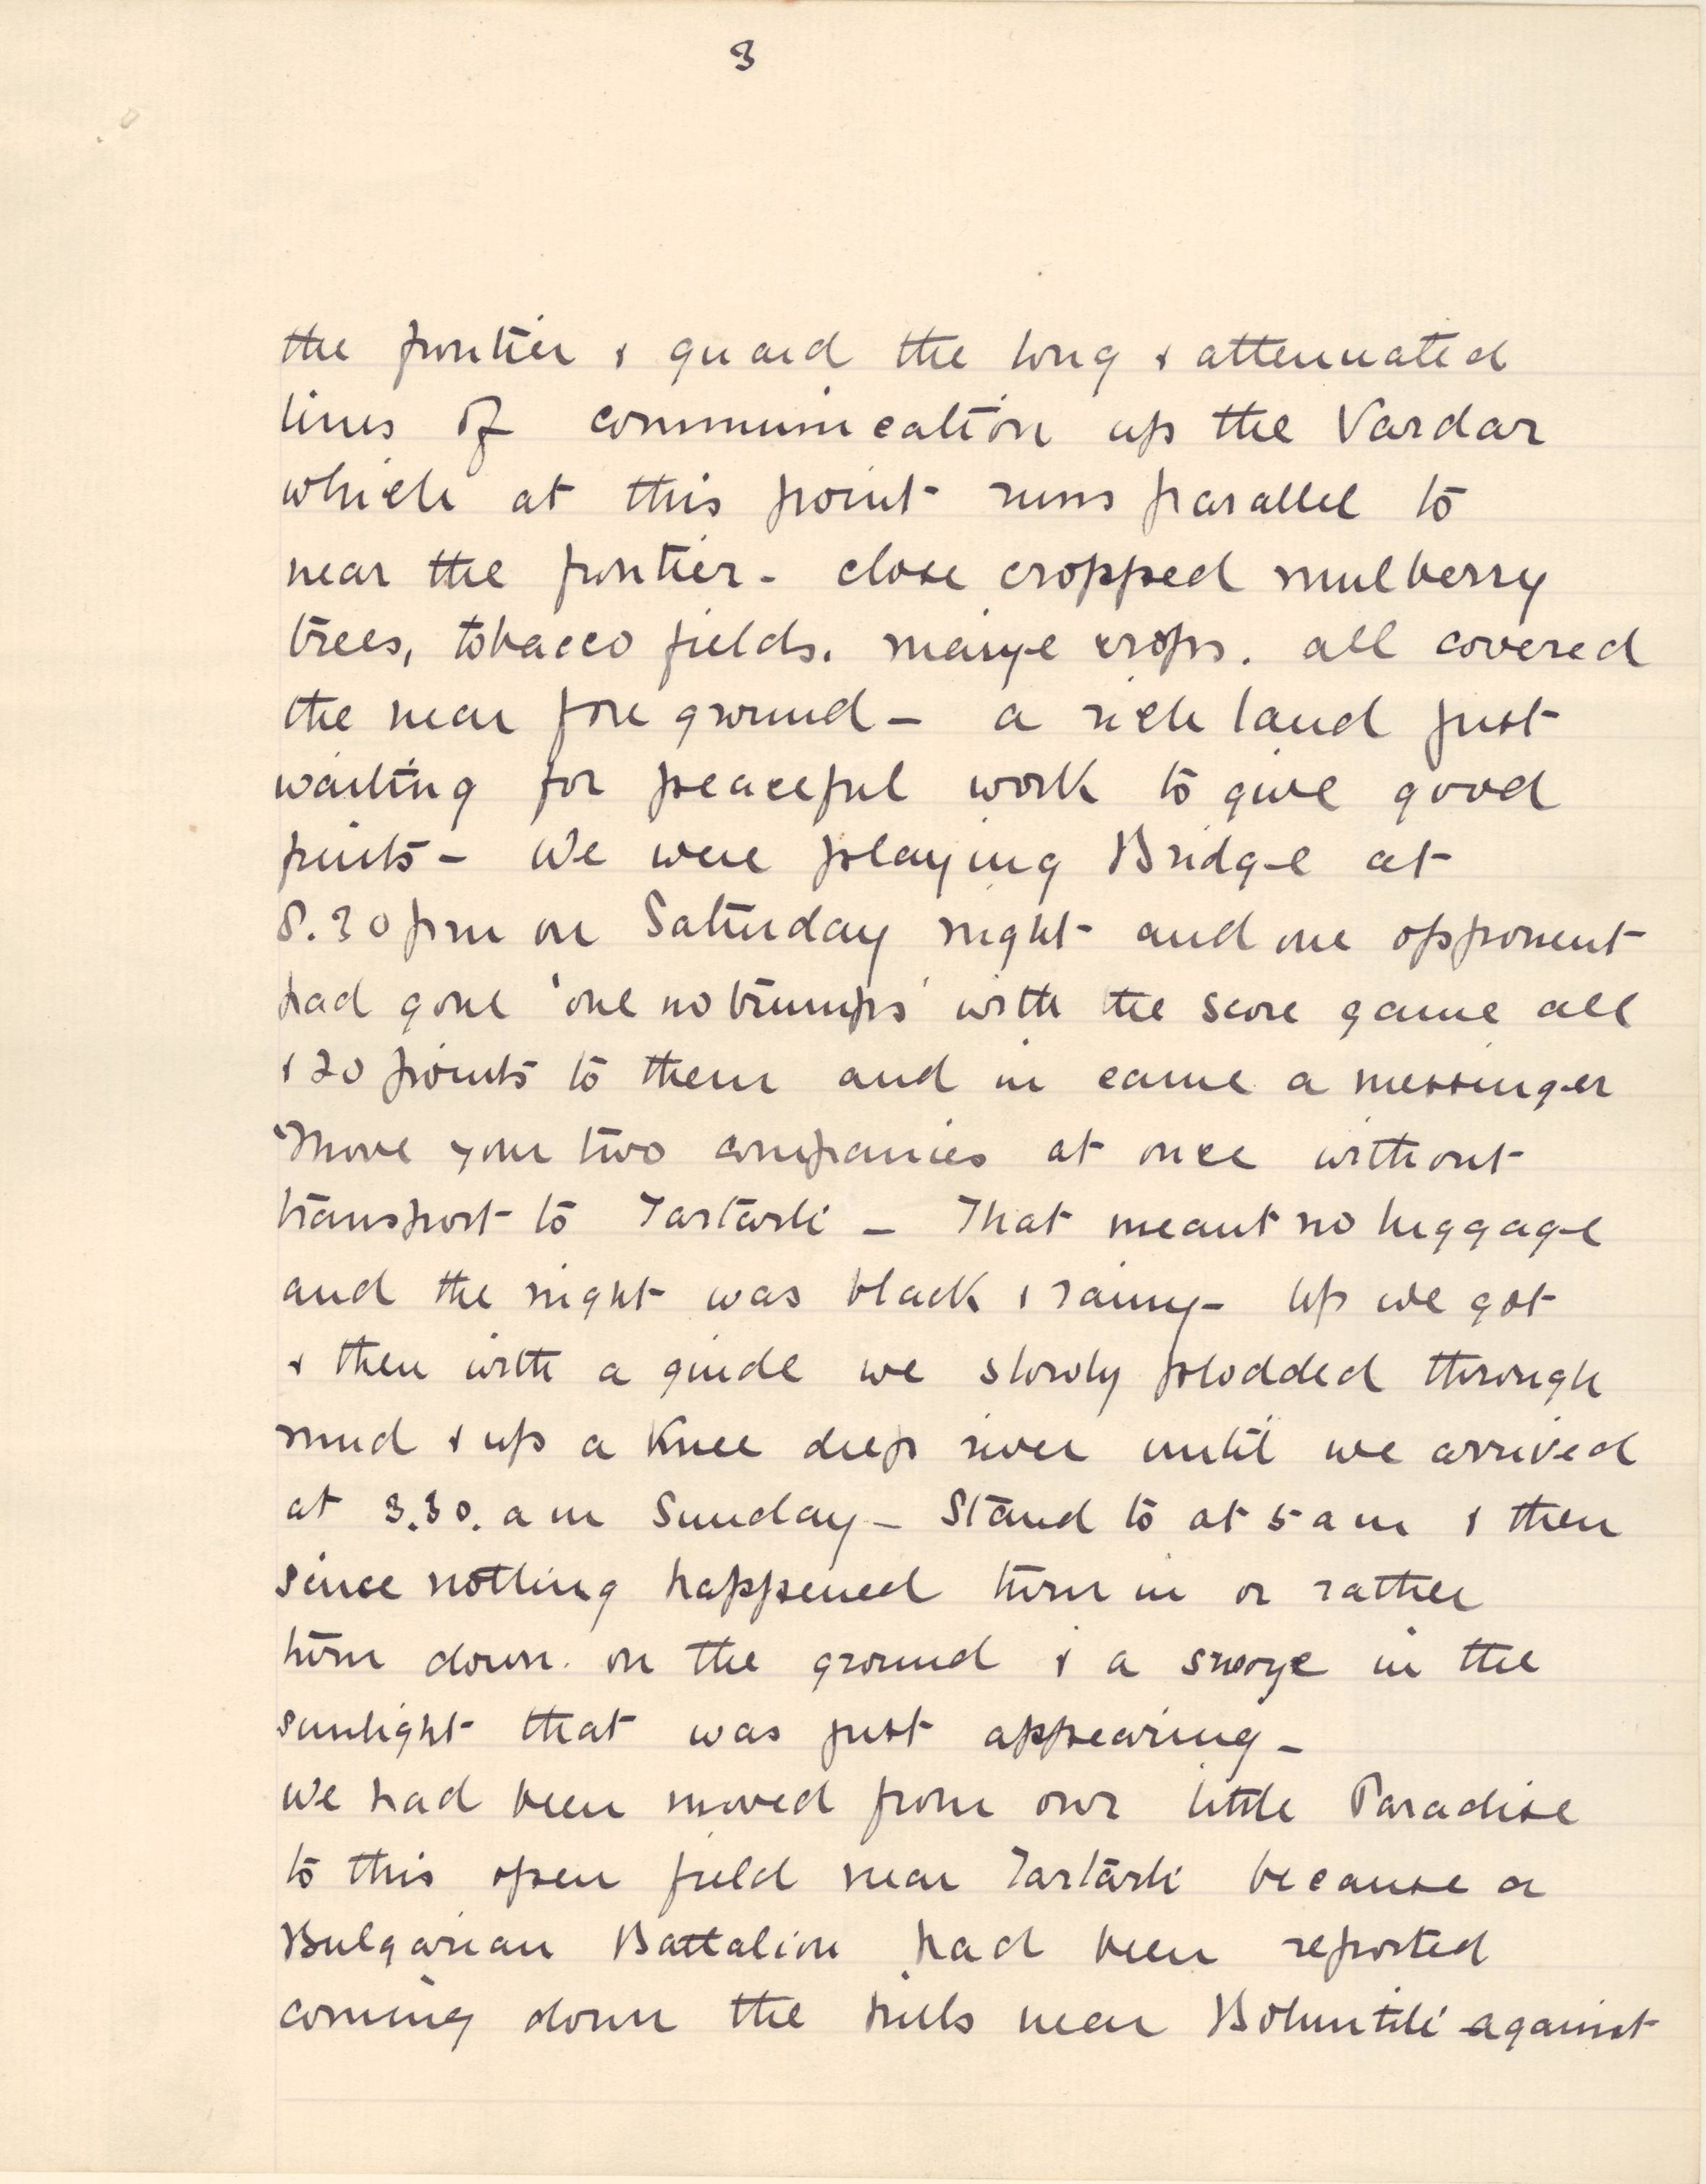 3
the frontier & guard the long & attenuated
lines of communication up the Vardar
which at this point runs parallel to
near the frontier - close cropped mulberry
trees, tobacco fields. maize crops. all covered
the near fore ground - a rich land just
waiting for peaceful work to give good
fruits - We were playing Bridge at
8.30 pm on Saturday night and one opponent
had gone 'one no trumps' with the score game all
& 20 points to them and in came a messinger
"Move your two companies at once without
transport to Tartarli - That meant no luggage
and the night was black & rainy - Up we got
& then with a guide we slowly plodded through
mud & up a knee deep river until we arrived
at 3.30. am Sunday - Stand to at 5 am & then
since nothing happened turn in or rather
turn down on the ground & a snooze in the
sunlight that was just appearing -
We had been moved from our little Paradise
to this open field near Tartarli because a
Bulgarian Battalion had been reported
coming down the hills near against